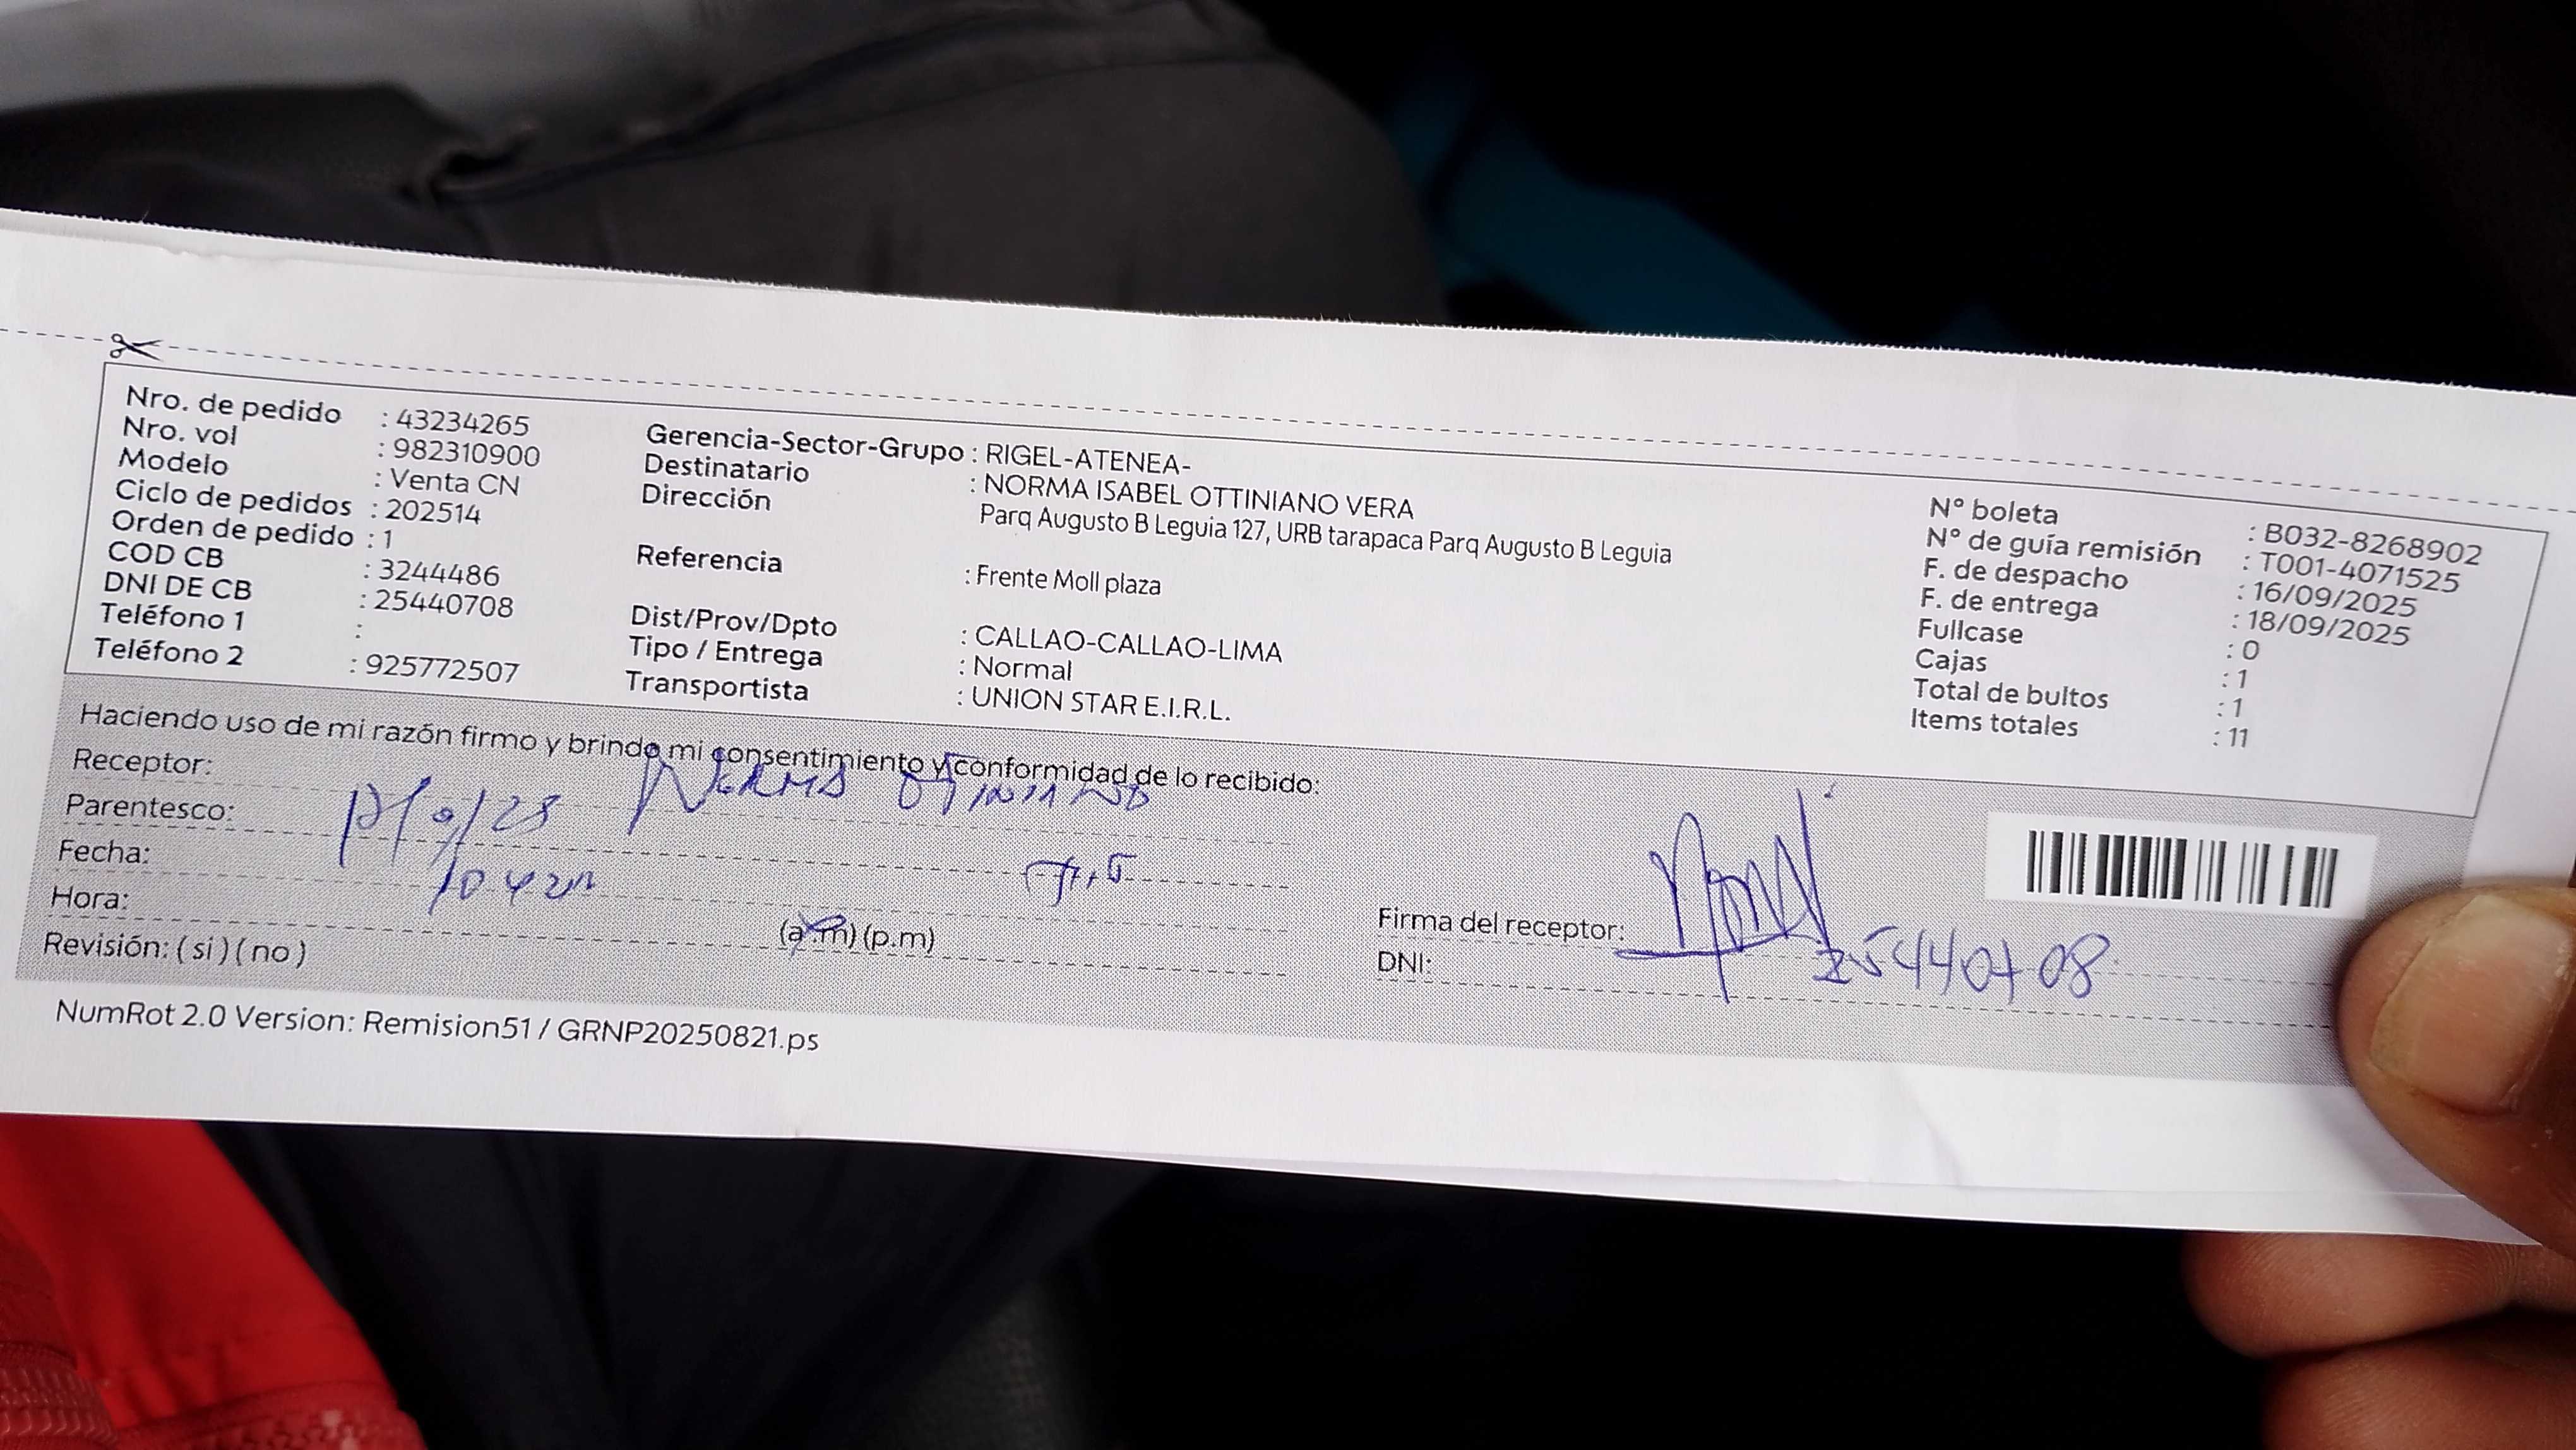 Nro. de pedido : 43234265
Nro. vol : 982310900
Modelo : Venta CN
Ciclo de pedidos : 202514
Orden de pedido : 1
COD CB : 3244486
DNI DE CB : 25440708
Teléfono 1 :
Teléfono 2 : 925772507
Gerencia-Sector-Grupo : RIGEL-ATENEA-
Destinatario : NORMA ISABEL OTTINIANO VERA
Dirección Parq Augusto B Leguia 127, URB tarapaca Parq Augusto B Leguia
Referencia : Frente Moll plaza
Dist/Prov/Dpto : CALLAO-CALLAO-LIMA
Tipo / Entrega : Normal
Transportista : UNION STAR E.I.R.L.
N° boleta : B032-8268902
N° de guía remisión : T001-4071525
F. de despacho : 16/09/2025
F. de entrega : 18/09/2025
Fullcase : 0
Cajas : 1
Total de bultos : 1
Items totales : 11
Haciendo uso de mi razón firmo y brindo mi consentimiento y conformidad de lo recibido:
Receptor:
Parentesco:
Fecha:
Hora: (a.m) (p.m)
Revisión: ( si ) ( no )
Firma del receptor:
DNI: 25440708
NumRot 2.0 Version: Remision51 / GRNP20250821.ps